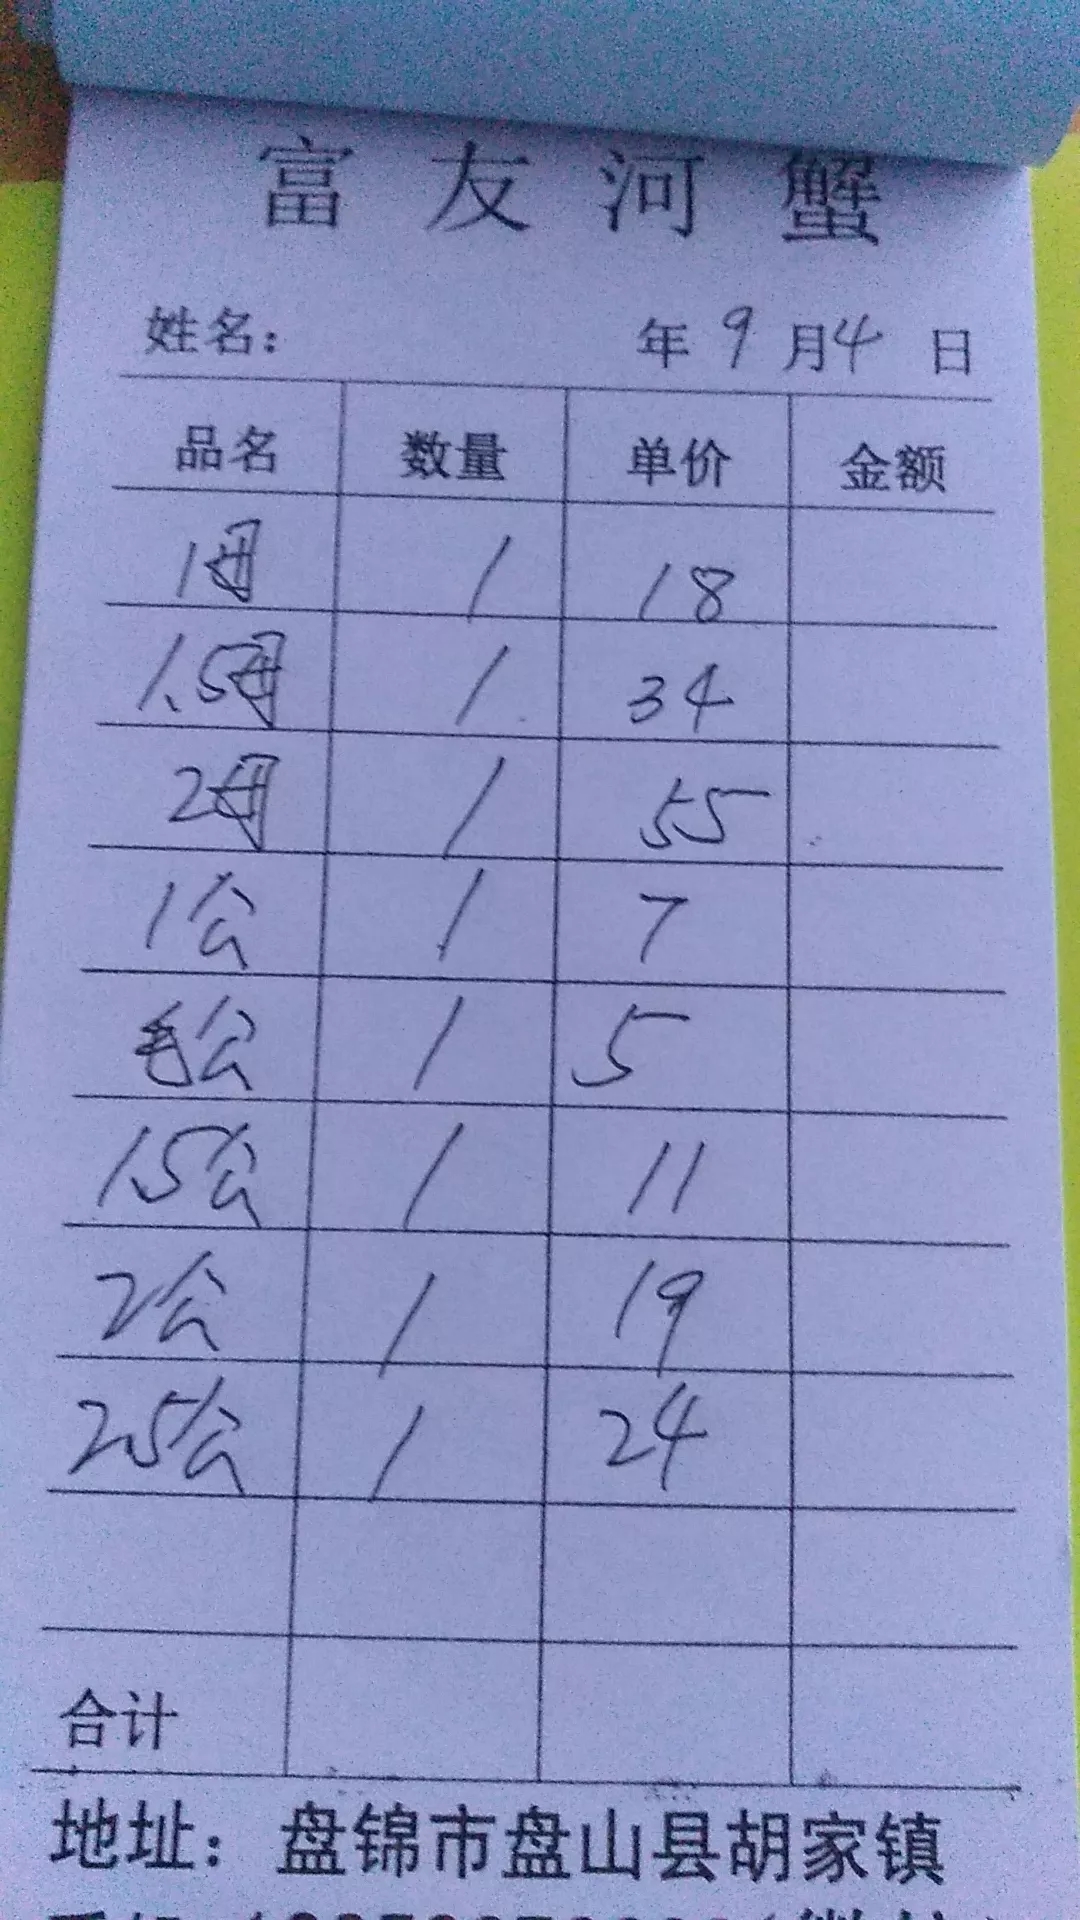 富友河蟹
姓名： 年 9 月 4 日
品名 数量 单价 金额
1母 1 18
1.5母 1 34
2母 1 55
1公 1 7
毛公 1 5
1.5公 1 11
2公 1 19
2.5公 1 24
合计
地址：盘锦市盘山县胡家镇